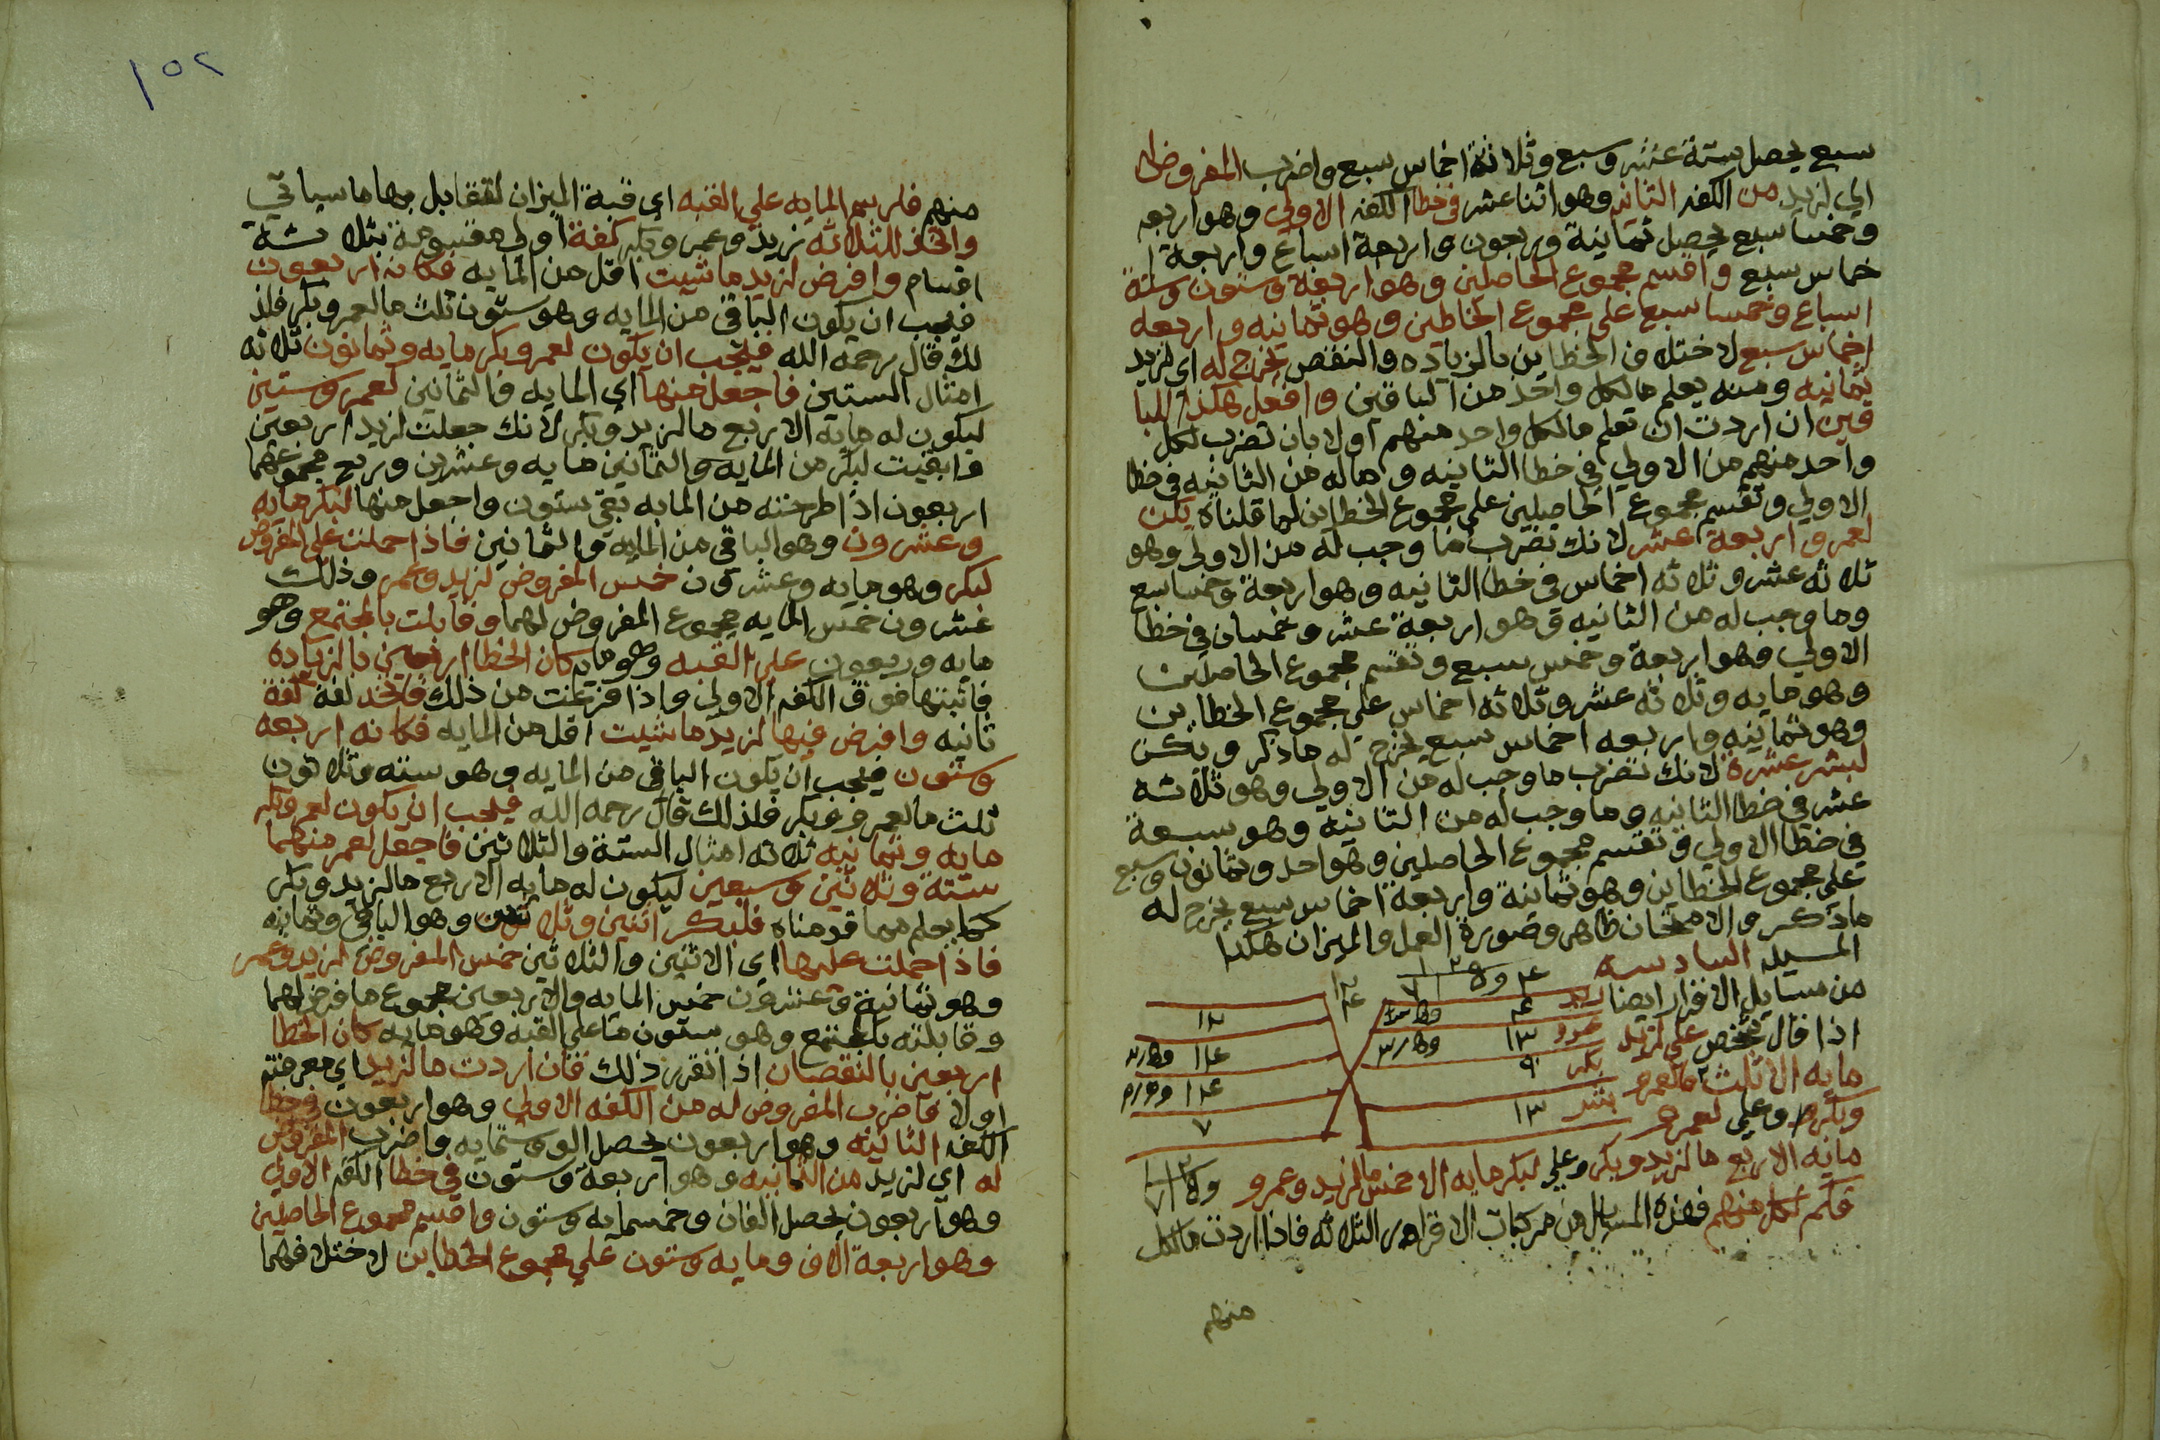 سبع يحصل ستة عشر وسبع وثلاثة اخماس سبع واضرب المفروض له
اي لزيد من الكفه الثانيه وهو اثنا عشر في خطا الكفه الاولي وهو اربعه
وخمسا سبع يحصل ثمانية واربعون واربعة اسباع واربعة ا
خماس سبع واقسم مجموع الحاصلين وهو اربعة وستون وستة
اسباع وخمسا سبع علي مجموع الخطاين وهو ثمانيه واربعه
اخماس سبع لاختلاف الخطاين بالزياده والنقص يخرج له اي لزيد
ثمانيه ومنه يعلم مالكل واحد من الباقين وافعل هكذا للبا
قين ان اردت ان تعلم مالكل واحد منهم اولا بان تضرب لكل
واحد منهم من الاولي في خطا الثانيه وماله من الثانيه في خطا
الاولي وتقسم مجموع الحاصلين علي مجموع الخطاين لما قلناه يكن
لعمرو اربعة عشر لانك تضرب ما وجب له من الاولي وهو
ثلاثه عشر وثلاثه اخماس في خطا الثانيه وهو اربعة وخمسا سبع
وما وجب له من الثانيه وهو اربعة عشر وخمسان في خطا
الاولي وهو اربعة وخمس سبع وتقسم مجموع الحاصلين
وهو مايه وثلاثه عشر وثلاثه اخماس علي مجموع الخطاين
وهو ثمانيه واربعه اخماس سبع يخرج له ما ذكر ويكن
لبشر عشرة لانك تضرب ما وجب له من الاولي وهو ثلاثة
عشر في خطا الثانيه وما وجب له من الثانية وهو سبعة
في خطا الاولي وتقسم مجموع الحاصلين وهو احد وثمانون وسبع
علي مجموع الخطاين وهو ثمانية واربعة اخماس سبع يخرج له
ما ذكر والامتحان ظاهر وصورة العمل والميزان هكذا
المسيله السادسه
من مسايل الاقرار ايضا
اذا قال شخص علي لزيد
مايه الا ثلث ما لعمرو
وبكر وعلي لعمرو
زيد
عمرو ١٣
بكر ٩
بشر ١٣
١٢
١٤
١٤
٧
مايه الا ربع ما لزيد وبكر وعلي لبكر مايه الا خمس ما لزيد وعمرو
فكم لكل منهم فهذه المسايل من مركبات الاقرار الثلاثه فاذا اردت مالكل
منهم
١٥٢
منهم فارسم المايه علي القبه اي قبة الميزان لتقابل بها ما سياتي
واتخذ للثلاثه زيد وعمرو وبكر كفة اولي مقسومة بثلاثة
اقسام وافرض لزيد ما شيت اقل من المايه فكانه اربعون
فيجب ان يكون الباقي من المايه وهو ستون ثلث ما لعمرو وبكر فلذ
لك قال رحمه الله فيجب ان يكون لعمرو وبكر مايه وثمانون ثلاثه
امثال الستين فاجعل منها اي المايه والثمانين لعمرو ستين
ليكون له مايه الا ربع ما لزيد وبكر لانك جعلت لزيد اربعين
وابقيت لبكر من المايه والثمانين مايه وعشرين وربع مجموعهما
اربعون اذا طرحته من المايه بقي ستون واجعل منها لبكر مايه
وعشرون وهو الباقي من المايه والثمانين فاذا حملت علي المفروض
لبكر وهو مايه وعشرون خمس المفروض لزيد وعمرو وذلك
عشرون خمس المايه مجموع المفروض لهما وقابلت بالمجتمع وهو
مايه واربعون علي القبه وهو مايه كان الخطا اربعين بالزياده
فاثبتها فوق الكفه الاولي واذا فرغت من ذلك فاتخذ له كفة
ثانيه وافرض فيها لزيد ما شيت اقل من المايه فكانه اربعه
وستون فيجب ان يكون الباقي من المايه وهو سته وثلاثون
ثلث ما لعمرو وبكر فلذلك قال رحمه الله فيجب ان يكون لعمرو وبكر
مايه وثمانيه ثلاثه امثال الستة والثلاثين فاجعل لعمرو منهما
ستة وثلاثين وسبعين ليكون له مايه الا ربع ما لزيد وبكر
كما يعلم مما قدمناه فلبكر اثنين وثلاثين وهو الباقي وثمانيه
فاذا حملت عليها اي الاثنين والثلاثين خمس المفروض لزيد وعمرو
وهو ثمانية وعشرون خمس المايه والاربعين مجموع ما فرض لهما
وقابلته بالمجتمع وهو ستون ما علي القبه وهو مايه كان الخطا
اربعين بالنقصان اذا تقرر ذلك فان اردت ما لزيد اي معرفته
اولا فاضرب المفروض له من الكفه الاولي وهو اربعون في خطا
الكفه الثانيه وهو اربعون يحصل الف وستمايه واضرب المفروض
له اي لزيد من الثانيه وهو اربعة وستون في خطا الكفه الاولي
وهو اربعون يحصل الفان وخمسمايه وستون واقسم مجموع الحاصلين
وهو اربعة الاف ومايه وستون علي مجموع الخطاين لاختلافهما